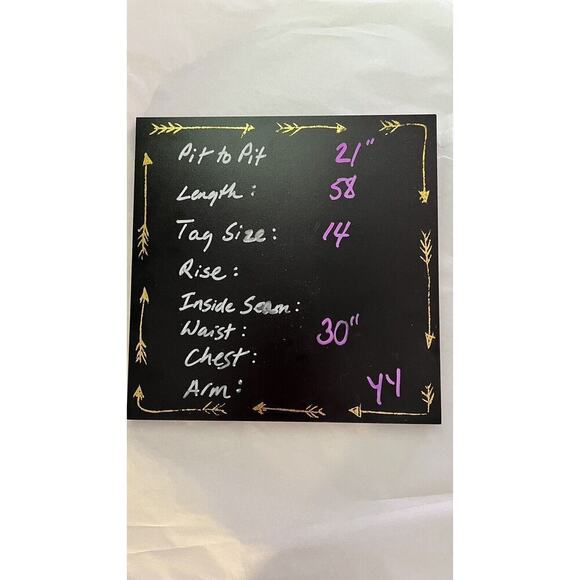 Pit to Pit 21"
Length: 58
Tag Size: 14
Rise:
Inside Seam:
Waist: 30"
Chest:
Arm:
YY